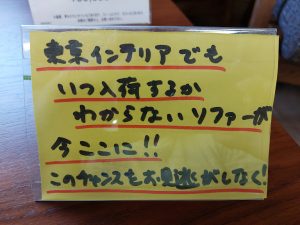 東京インテリアでも
いつ入荷するか
わからないソファーが
今ここに!!
このチャンスをお見逃がしなく!